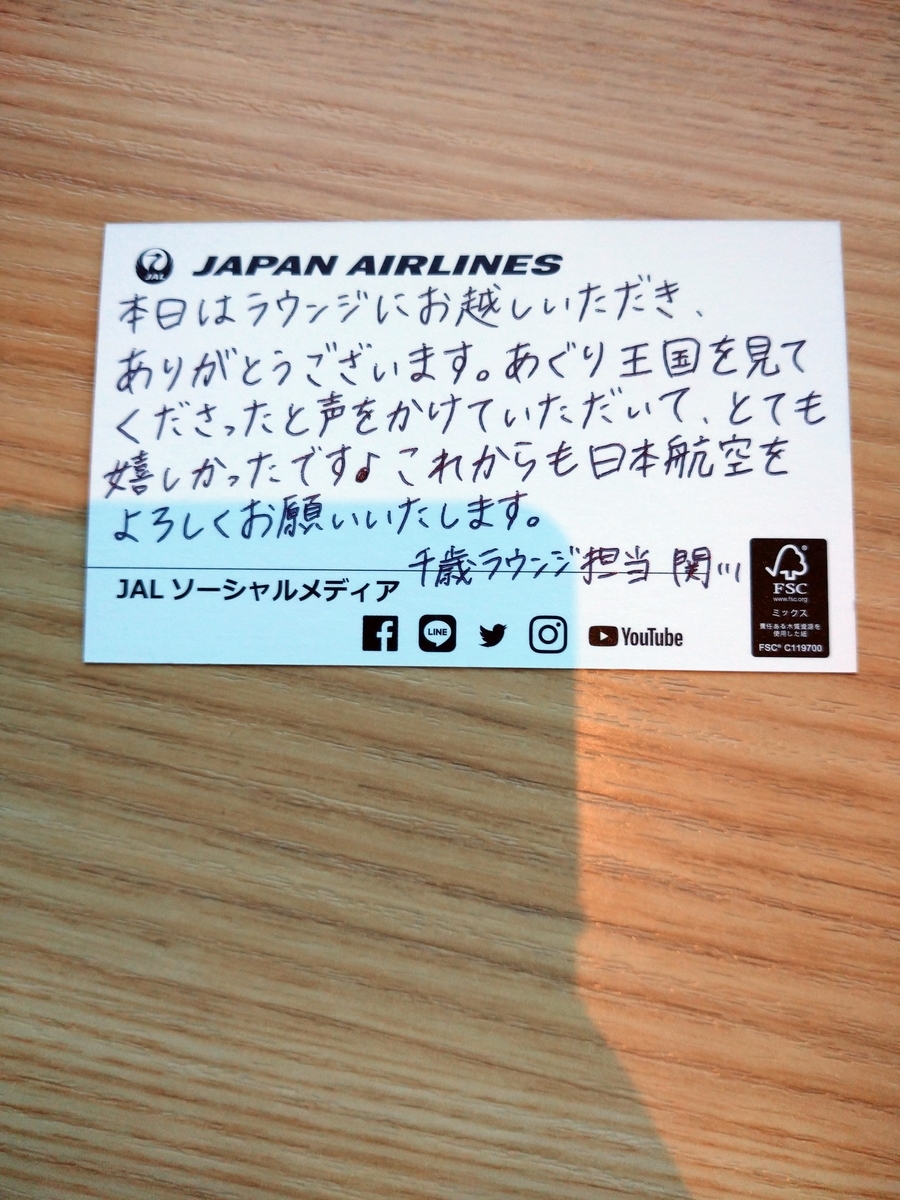 JAL JAPAN AIRLINES
本日はラウンジにお越しいただき、
ありがとうございます。あぐり王国を見て
くださったと声をかけていただいて、とても
嬉しかったです♪これからも日本航空を
よろしくお願いいたします。
千歳ラウンジ担当 関
JAL ソーシャルメディア
LINE
YouTube
FSC
www.fsc.org
ミックス
責任ある木質資源を
使用した紙
FSC® C119700